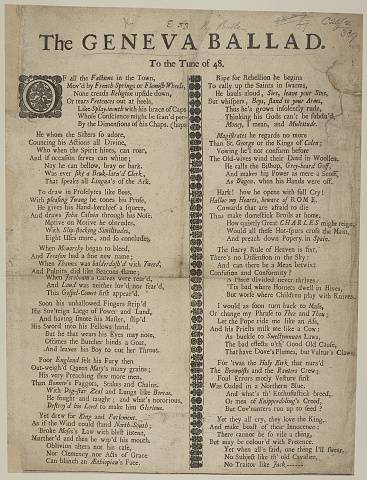 The GENEVA BALLAD.
To the Tune of 48.
OF all the Factions in the Town,
Mov'd by French Springs or Flemish Wheels,
None treads Religion upside down,
Or tears Pretences out at heels,
Like Splaymouth with his brace of Caps
Whose Conscience might be scan'd per-
By the Dimensions of his Chaps. (haps
He whom the Sisters so adore,
Counting his Actions all Divine,
Who when the Spirit hints, can roar,
And if occasion serves can whine;
Nay he can bellow, bray or bark.
Was ever sike a Beuk-larn'd Clerk,
That speaks all Linguas of the Ark.
To draw in Proselytes like Bees,
With pleasing Twang he tones his Prose,
He gives his Hand-kerchief a squeez,
And draws John Calvin through his Nose.
Motive on Motive he obtrudes,
With Slip-stocking Similitudes,
Eight Uses more, and so concludes.
When Monarchy began to bleed,
And Treason had a fine new name;
When Thames was balderdash'd with Tweed,
And Pulpits did like Beacons flame;
When Jeroboam's Calves were rear'd,
And Laud was neither lov'd nor fear'd,
This Gospel-Comet first appear'd.
Soon his unhallowed Fingers strip'd
His Sov'reign Liege of Power and Land,
And having smote his Master, slip'd
His Sword into his Fellows hand.
But he that wears his Eyes may note,
Oft-times the Butcher binds a Goat,
And leaves his Boy to cut her Throat.
Poor England felt his Fury then
Out-weigh'd Queen Mary's many grains;
His very Preaching slew more men,
Than Bonner's Faggots, Stakes and Chains.
With Dog-star Zeal and Lungs like Boreas,
He fought and taught; and what's notorious,
Destroy'd his Lord to make him Glorious.
Yet drew for King and Parliament,
As if the Wind could stand North-South;
Broke Moses's Law with blest intent,
Murther'd and then he wip'd his mouth.
Oblivion alters not his case,
Nor Clemency nor Acts of Grace
Can blanch an Æthiopian's Face.
Ripe for Rebellion he begins
To rally up the Saints in swarms,
He bawls aloud, Sirs, leave your Sins,
But whispers, Boys, stand to your Arms,
Thus he's grown insolently rude,
Thinking his Gods can't be subdu'd;
Money, I mean, and Multitude.
Magistrates he regards no more
Than St. George or the Kings of Colen;
Vowing he'l not conform before
The Old-wives wind their Dead in Woollen.
He calls the Bishop, Grey-hair'd Coff,
And makes his Power as mere a Scoff,
As Dagon, when his Hands were off.
Hark! how he opens with full Cry!
Hallow my Hearts, beware of ROME.
Cowards that are afraid to die
Thus make domestick Broils at home.
How quietly Great CHARLES might reign,
Would all these Hot-spurs cross the Main,
And preach down Popery in Spain.
The starry Rule of Heaven is fixt,
There's no Dissension in the Sky:
And can there be a Mean betwixt
Confusion and Conformity?
A Place divided never thrives:
'Tis bad where Hornets dwell in Hives,
But worse where Children play with Knives.
I would as soon turn back to Mass,
Or change my Phrase to Thee and Thou;
Let the Pope ride me like an Ass,
And his Priests milk me like a Cow:
As buckle to Smectymnuan Laws,
The bad effects o'th' Good Old Cause,
That have Dove's Plumes, but Vultur's Claws.
For 'twas the Haly Kirk that nurs'd
The Brownists and the Ranters Crew;
Foul Errors motly Vesture first
Was Oaded in a Northern Blue.
And what's th' Enthusiastick breed,
Or men of Knipperdoling's Creed,
But Cov'nanters run up to seed!
Yet they all cry, they love the King,
And make boast of their Innocence:
There cannot be so vile a thing,
But may be colour'd with Pretence.
Yet when all's said, one thing I'll swear,
No Subject like th' old Cavalier,
No Traitor like Jack------